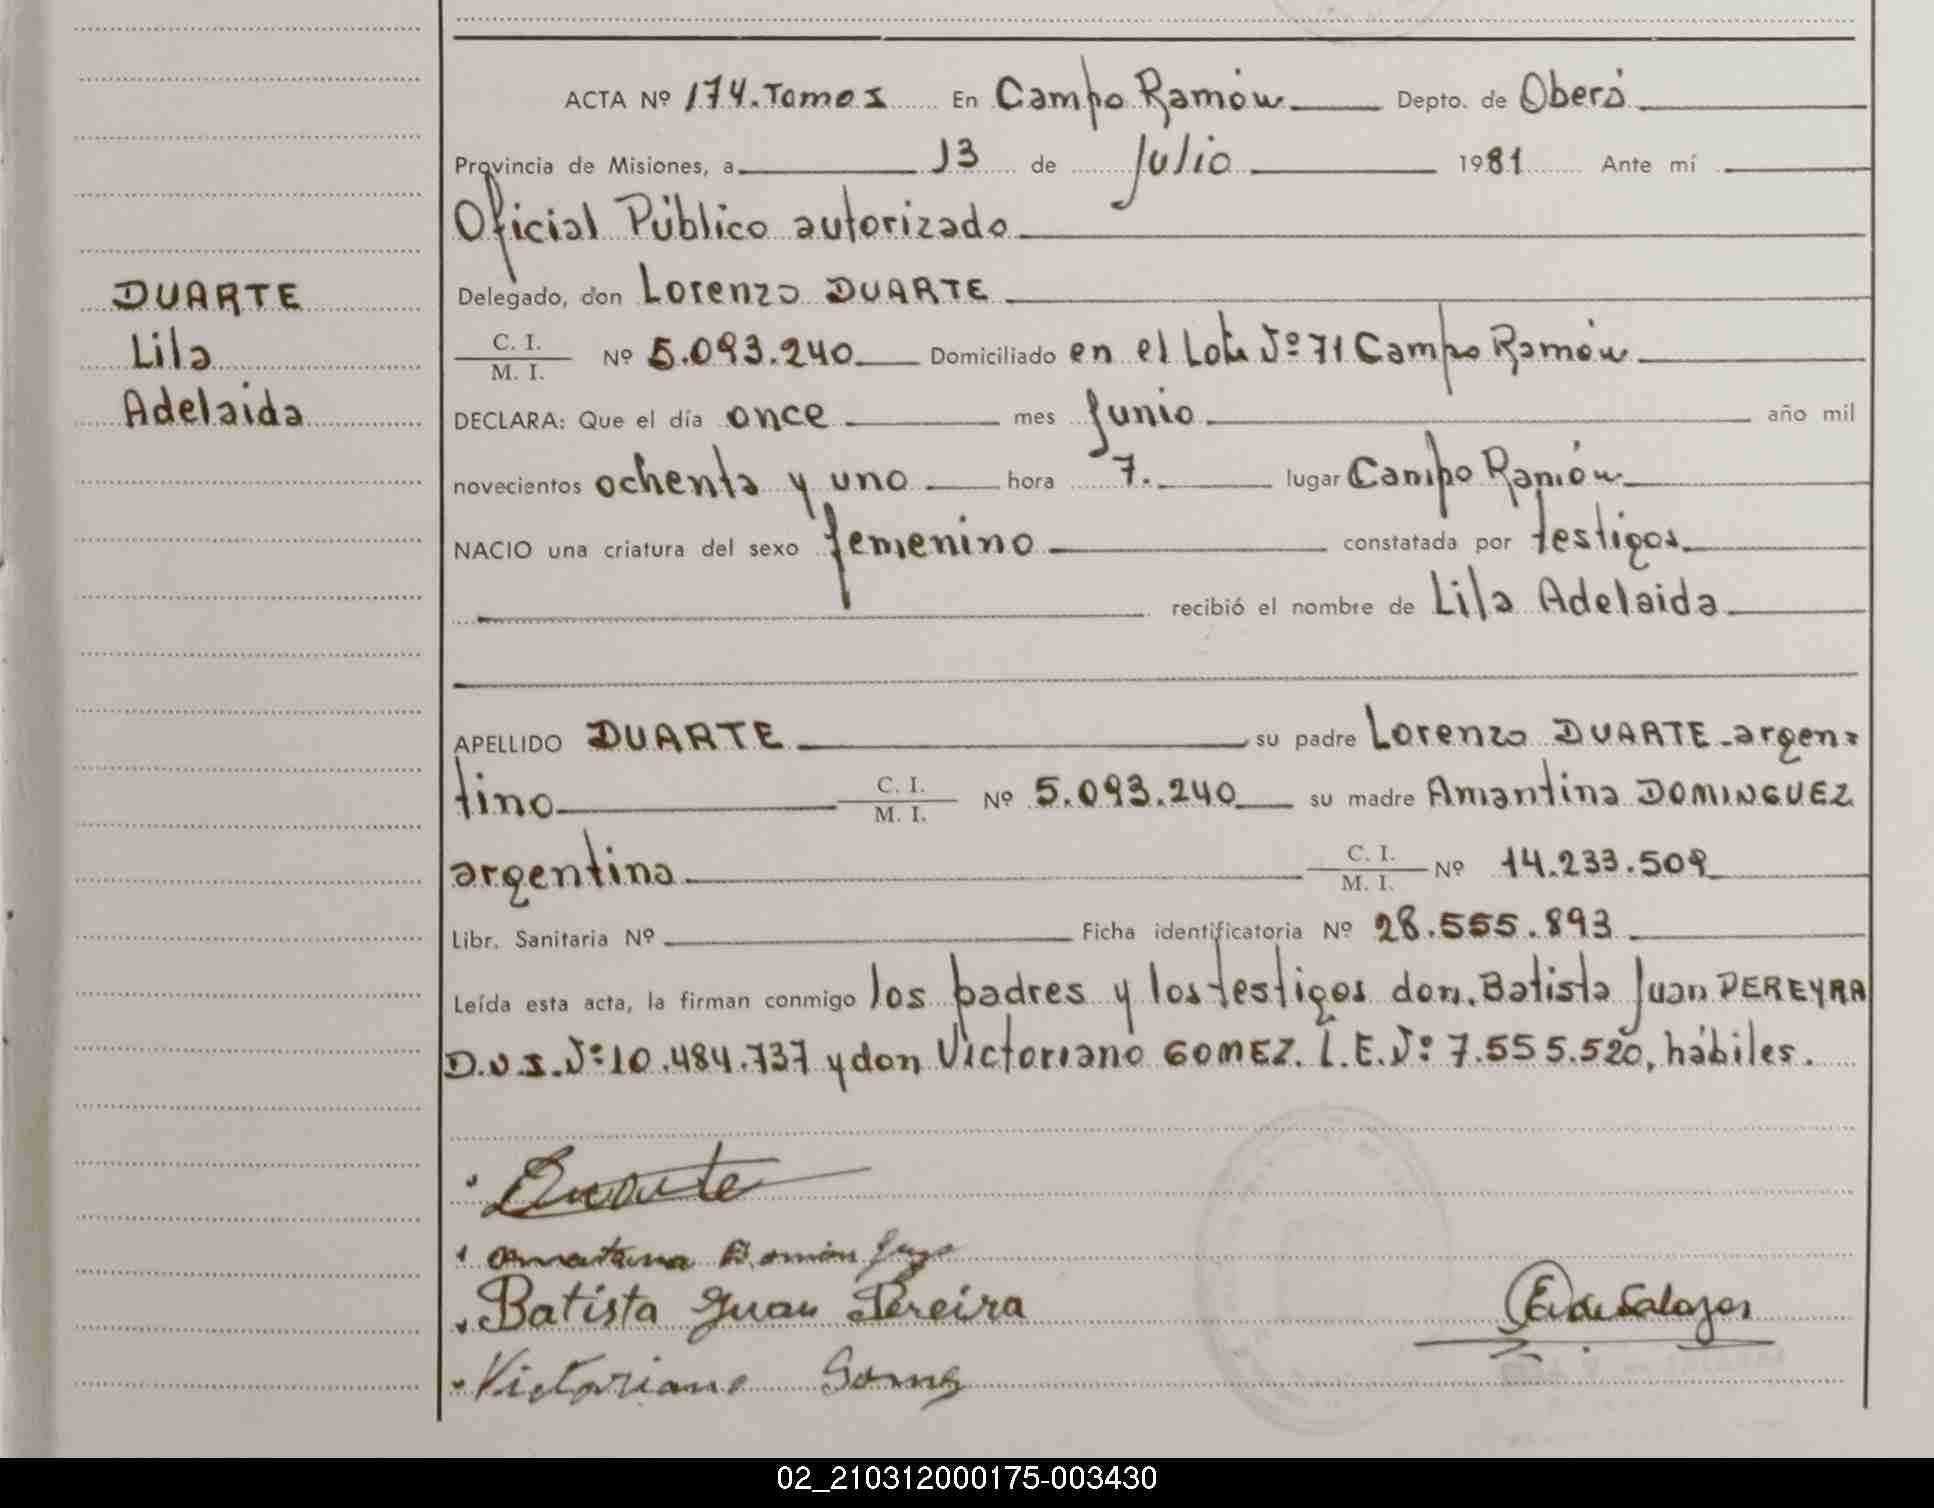 ACTA Nº 174. Tomo I En Campo Ramón Depto. de Oberá
Provincia de Misiones, a 13 de Julio 1981 Ante mí
Oficial Público autorizado
Delegado, don Lorenzo DUARTE
C. I.
M. I. Nº 5.093.240 Domiciliado en el Lote Nº 71 Campo Ramón
DECLARA: Que el día once mes Junio año mil
novecientos ochenta y uno hora 7. lugar Campo Ramón
NACIO una criatura del sexo femenino constatada por testigos
recibió el nombre de Lila Adelaida
APELLIDO DUARTE su padre Lorenzo DUARTE - argen=
tino C. I. M. I. Nº 5.093.240 su madre Amantina DOMINGUEZ
argentina C. I. M. I. Nº 14.233.509
Libr. Sanitaria Nº Ficha identificatoria Nº 28.555.893
Leída esta acta, la firman conmigo los padres y los testigos don. Batista Juan PEREYRA
D.N.I. Nº: 10.484.737 y don Victoriano GOMEZ. L.E. Nº: 7.555.520, hábiles.
DUARTE
Lila
Adelaida
Duarte
Batista Juan Pereira
Victoriano Gomez
02_210312000175-003430